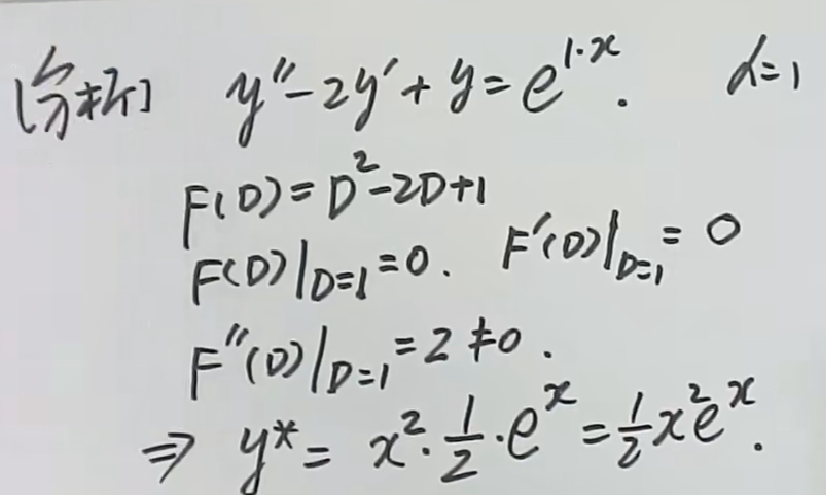 [分析] y''-2y'+y=e^{1·x}. α=1
F(D)=D^2-2D+1
F(D)|_{D=1}=0. F'(D)|_{D=1}=0
F''(D)|_{D=1}=2≠0.
⇒ y*=x^2·\frac{1}{2}·e^x=\frac{1}{2}x^2e^x.